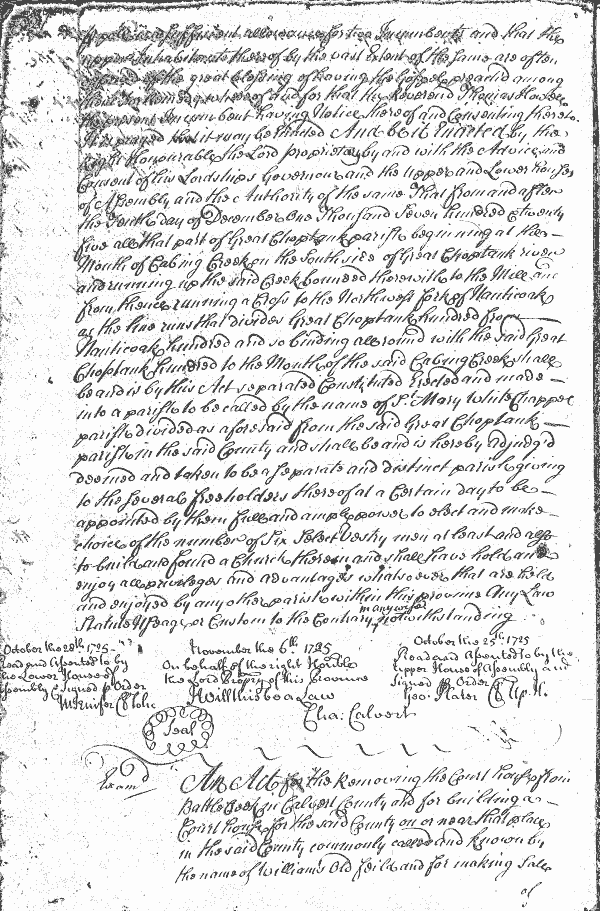 and sufficient allowance for two Incumbents and that the
upper Inhabitants thereof by the vast Extent of the same are often
of the great blessing of having the Gospel preached among
them for remedy whereof and for that the Reverend Thomas
the present Incumbent having Notice thereof and Consenting thereto
It is prayed that it may be Enacted And be it Enacted by the
Right Honourable the Lord proprietary by and with the Advice and
Consent of his Lordships Governour and the upper and Lower houses
of Assembly and the Authority of the same That from and after
the Tenth day of December One Thousand Seven hundred & twenty
five all that part of Great Choptank parish beginning at the
Mouth of Cabing Creek on the South side of Great Choptank river
and running up the said Creek bounded therewith to the Mill and
from thence running a Cross to the Northwest fork of Nanticoak
as the line runs that divides Great Choptank hundred from
Nanticoak hundred and so binding all round with the said Great
Choptank hundred to the Mouth of the said Cabing Creek shall
be and is by this Act separated Constituted Erected and made
into a parish to be called by the name of St. Mary White Chappel
parish divided as aforesaid from the said Great Choptank
parish in the said County and shall be and is hereby adjudg'd
deemed and taken to be a separate and distinct parish giving
to the several freeholders thereof at a Certain day to be
appointed by them full and ample power to elect and make
choice of the number of Six Select Vestry men at least and also
to build and found a Church therein and shall have hold and
enjoy all priviledges and advantages whatsoever that are held
and enjoyed by any other parish within this province Any Law
Statute Usage or Custom to the Contrary in any wise notwithstanding
October the 28th 1725
Read and Assented to by
the Lower House of
Assembly & Signed p Order
M Jenifer Cl Lo ho
November the 6th 1725
On behalf of the right Honble
the Lord Propry of this Province
I will this be a Law
Cha: Calvert
October the 25th 1725
Read and Assented to by the
upper House of Assembly and
Signed p Order
Geo: Plater Cl Up. H.
Seal
Exam'd
An Act for the Removing the Court house from
Battle Creek in Calvert County and for building a
Court house for the said County on or near that place
in the said County commonly called and known by
the name of William's Old feild and for making Sale
of